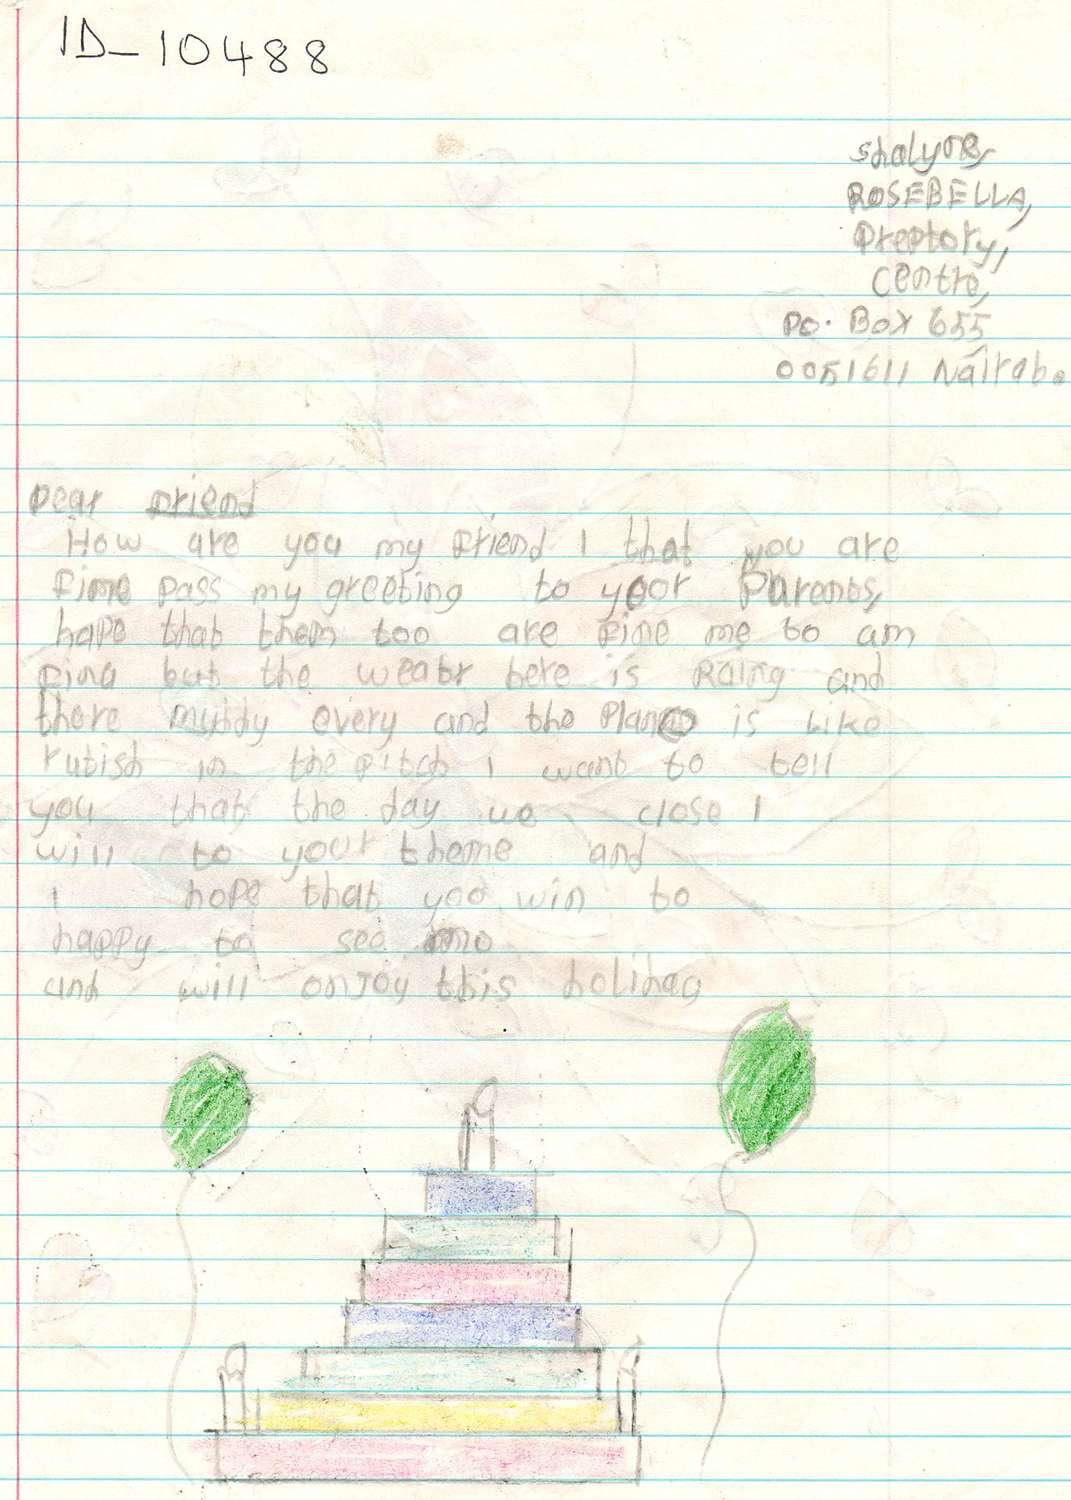 ID-10488
Shalyne,
ROSEBELLA,
Preptory,
Centre,
Po. Box 655
0051611 Nairab.
Dear Friend
How are you my Friend I that you are
Fine pass my greeting to your Parents,
hape that them too are Fine me to am
Fina but the weabr bere is Raing and
there muddy every and the Plance is like
rutish in the pitch I want to tell
you that the day we close I
will to your theme and
I hope that you win to
happy to see me
and will onjoy this holiday